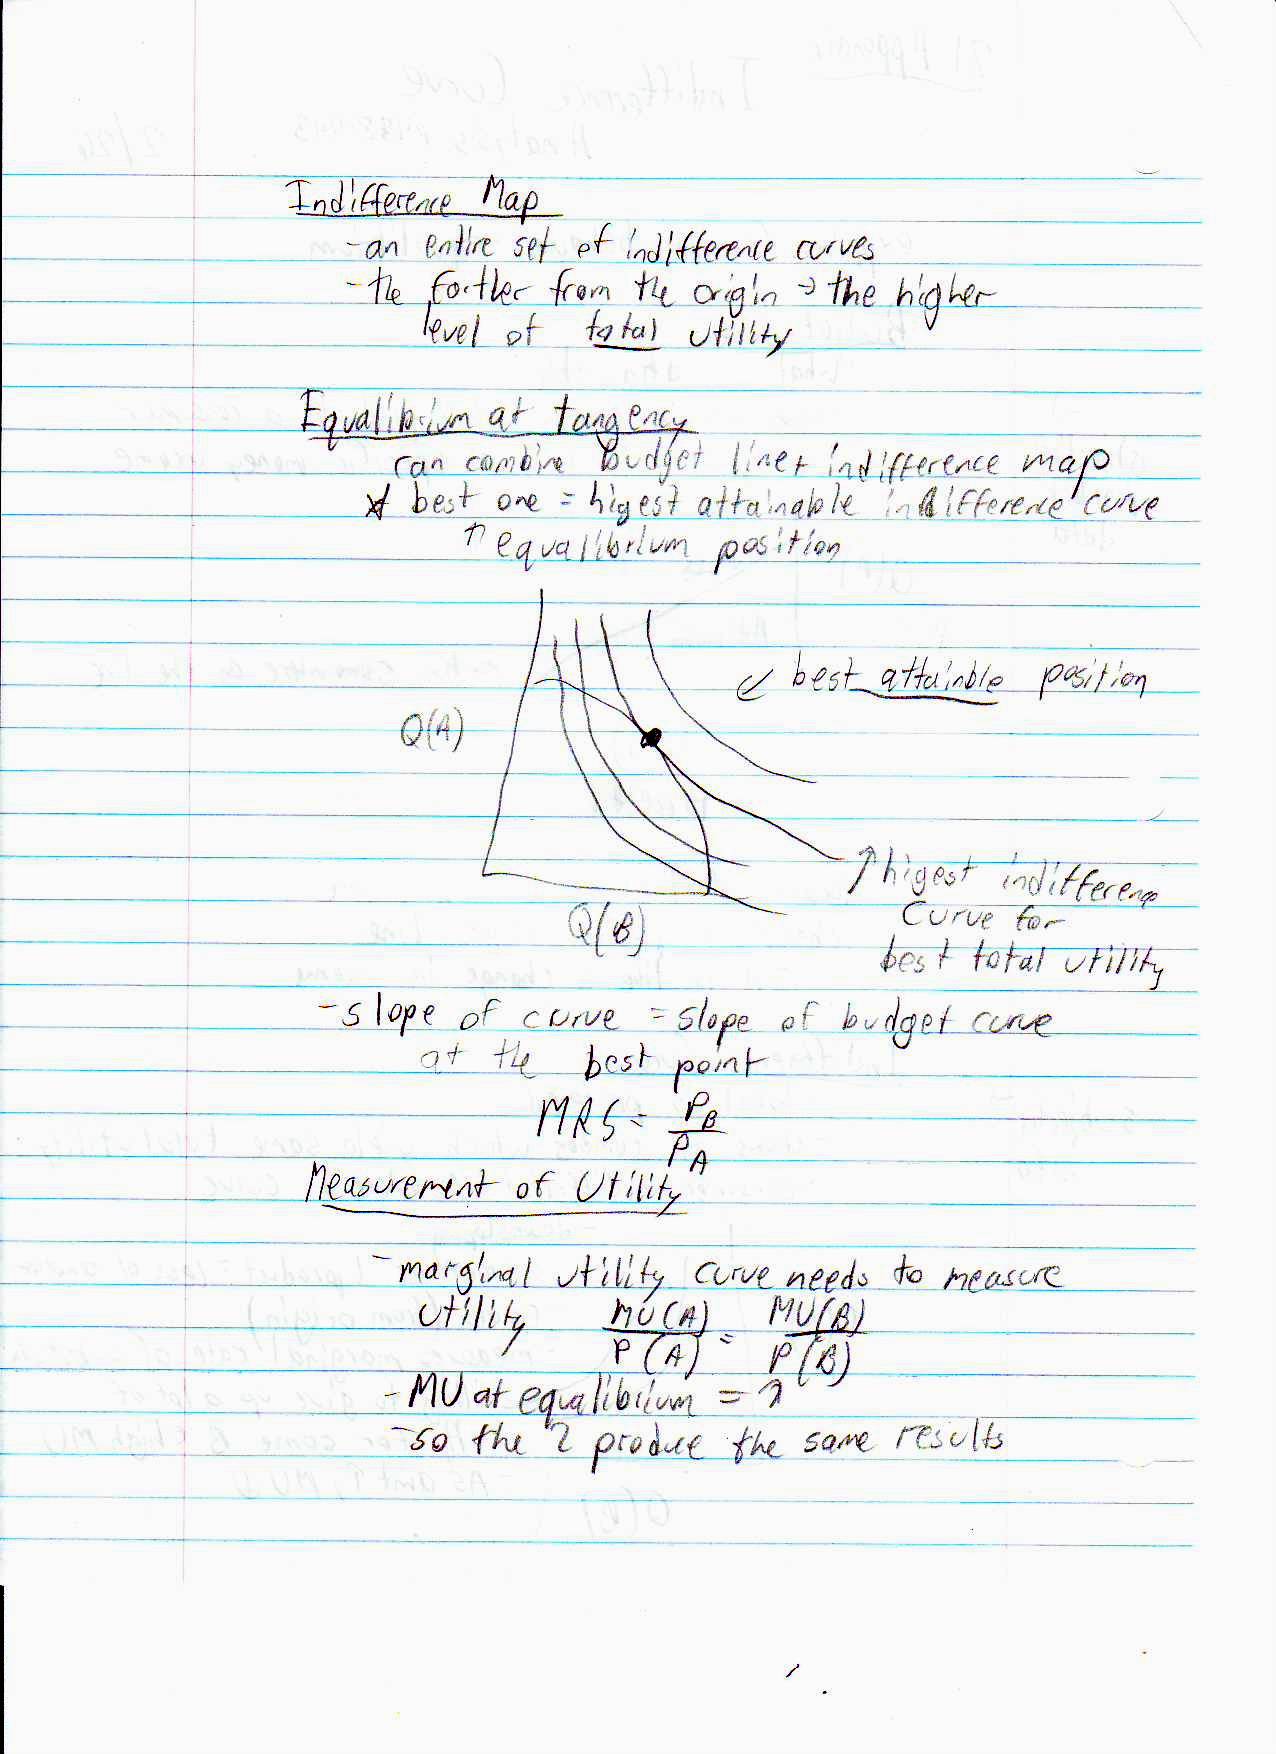 Indifference Map
- an entire set of indifference curves
- the farther from the origin → the higher
level of total utility
Equalibrium at tangency
can combine budget line + indifference map
* best one = higest attainable indifference curve
↑ equalibrium position
↙ best attainble position
Q(A)
↑ higest indifference
Curve for
best total utility
Q(B)
- slope of curve = slope of budget curve
at the best point
MRS = P_B / P_A
Measurement of Utility
- marginal utility curve needs to measure
utility MU(A) / P(A) = MU(B) / P(B)
- MU at equalibrium =
- so the 2 produce the same results